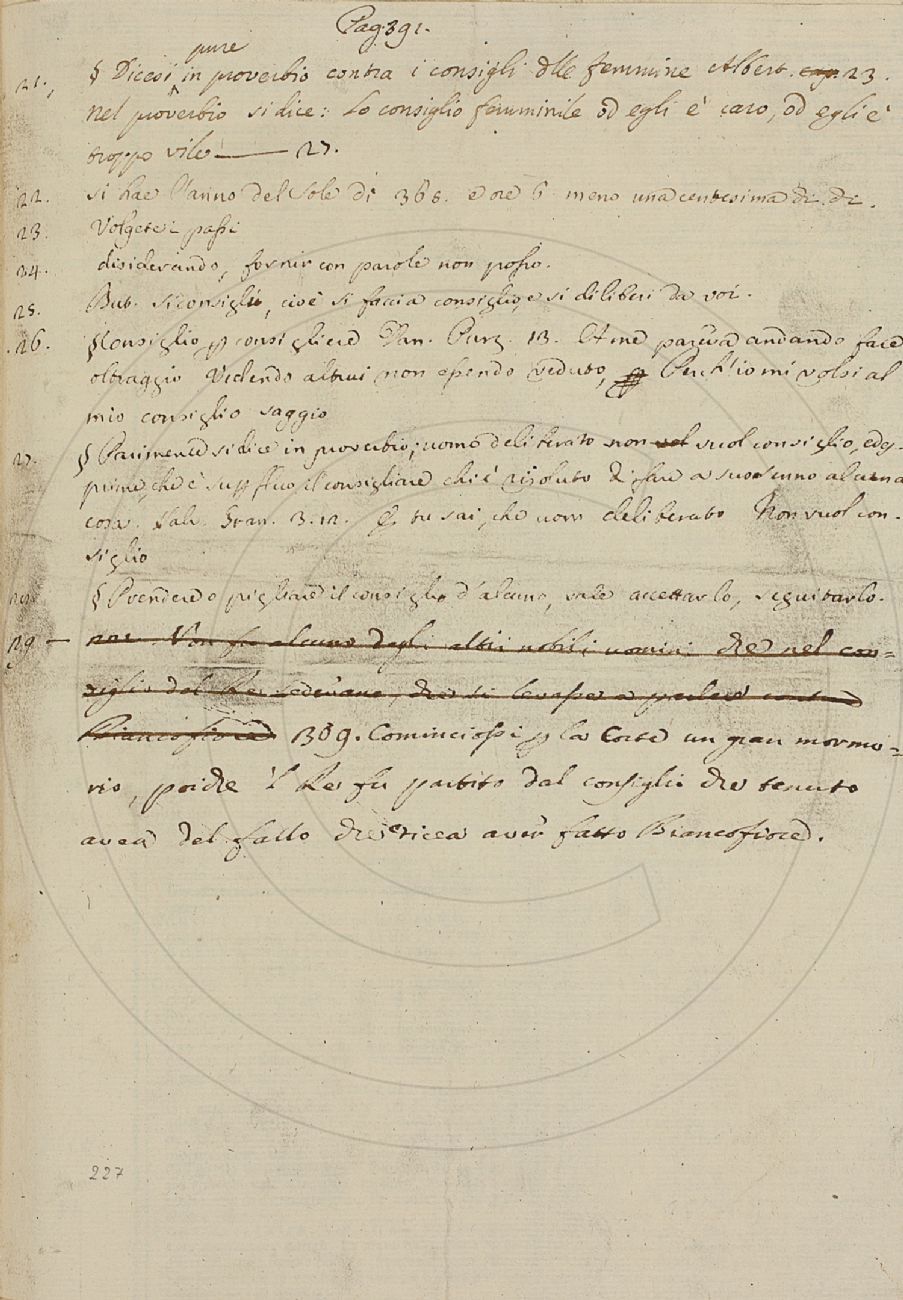 Pag. 391.
pure
21. § Dicesi in proverbio contra i consigli dlle femmine Albert. cap. 23.
nel proverbio si dice: Lo consiglio femminile od egli è caro, od egli è
troppo vile —— 27.
22. si hae l'anno del Sole di 366. e ore 6 meno una centesima di di.
23. Volgete i passi
24. disiderando, fornir con parole non posso.
25. But. si consigli, cioè si faccia consiglio, e si diliberi da voi.
26. § Consiglio p consigliere Dan. Purg. 13. A me pareva andando fare
oltraggio Vedendo altrui non essendo veduto, Perch'io mi volsi al
mio consiglio saggio
27. § Parimente si dice in proverbio; uomo deliberato non vuol consiglio, ed es-
prime, che è supfluo il consigliare chi è risoluto di fare a suo senno alcuna
cosa. Salv. Gran. 3. 12. E tu sai, che uom deliberato Non vuol con-
siglio
§ Prendere o pigliare il consiglio d'alcuno, vale accettarlo, seguitarlo.
29 — Non fu alcuno degli altri nobili uomini che nel con=
siglio del Re sedevano, che si levasse a parlare contra
Biancofiore 309. Cominciossi p la Corte un gran mormo=
rio, poiche 'l Re fu partito dal consiglio che tenuto
avea del fallo che dicea aver fatto Biancofiore.
227